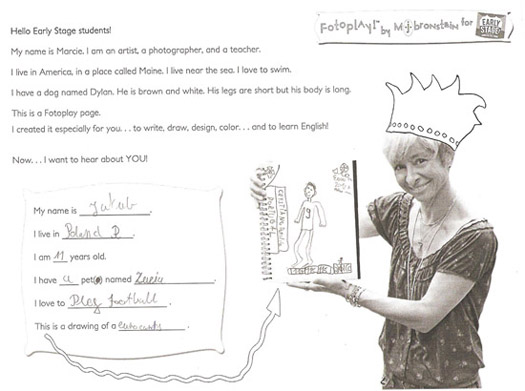 Hello Early Stage students!
Fotoplay! by M bronstein for EARLY STAGE
My name is Marcie. I am an artist, a photographer, and a teacher.
I live in America, in a place called Maine. I live near the sea. I love to swim.
I have a dog named Dylan. He is brown and white. His legs are short but his body is long.
This is a Fotoplay page.
I created it especially for you. . . to write, draw, design, color. . . and to learn English!
Now. . . I want to hear about YOU!
My name is Jakub.
I live in Poland
I am 11 years old.
I have a pet(s) named Zuzia.
I love to Play football.
This is a drawing of a